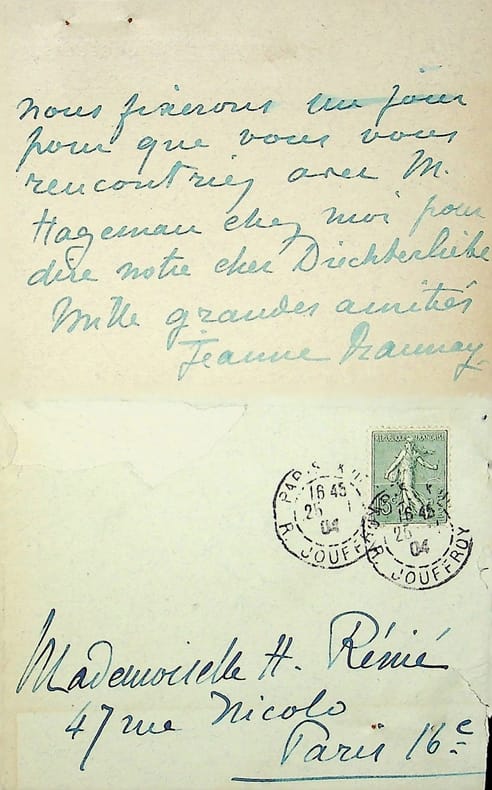 nous fixerons un jour
pour que vous vous
rencontriez avec M.
Hageman chez moi pour
dire notre cher Diechterliebe
Mille grandes amitiés
Jeanne Raunay
REPUBLIQUE FRANÇAISE
PARIS XVII
16 45
25 1
04
R. JOUFFROY
16 45
25 1
04
R. JOUFFROY
Mademoiselle H. Rénié
47 rue Nicolo
Paris 16e